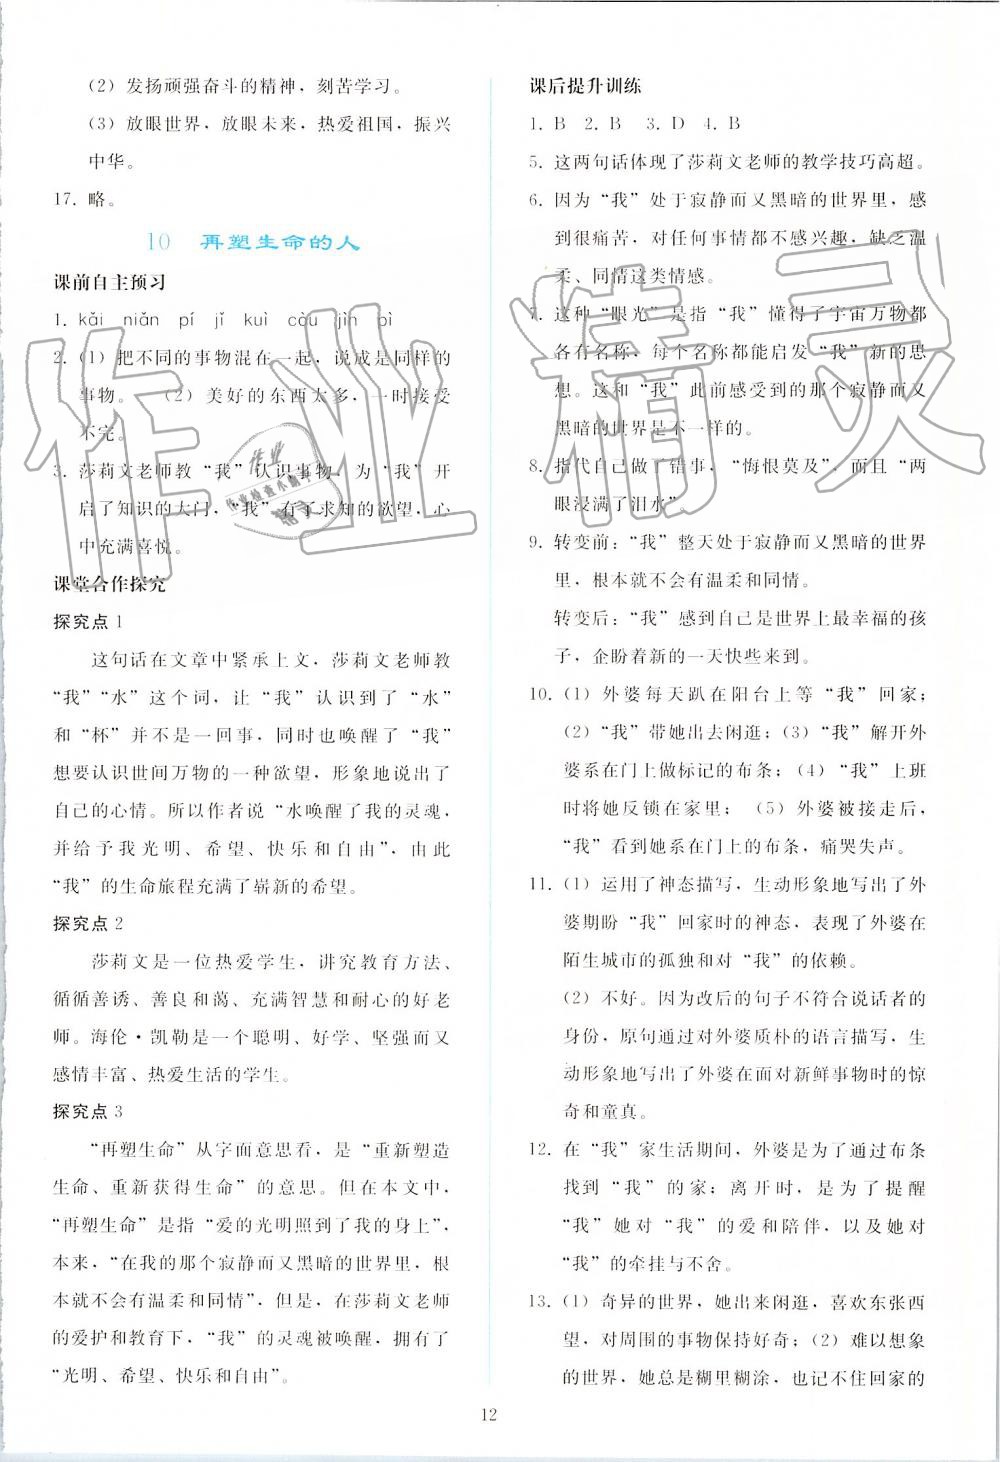 （2）发扬顽强奋斗的精神，刻苦学习。
（3）放眼世界，放眼未来，热爱祖国，振兴
中华。
17. 略。
10 再塑生命的人
课前自主预习
1. kǎi niǎn pí jǐ kuì còu jìn pì
2.（1）把不同的事物混在一起，说成是同样的
事物。（2）美好的东西太多，一时接受
不完。
3. 莎莉文老师教“我”认识事物，为“我”开
启了知识的大门，“我”有了求知的欲望，心
中充满喜悦。
课堂合作探究
探究点 1
这句话在文章中紧承上文，莎莉文老师教
“我”“水”这个词，让“我”认识到了“水”
和“杯”并不是一回事，同时也唤醒了“我”
想要认识世间万物的一种欲望，形象地说出了
自己的心情。所以作者说“水唤醒了我的灵魂，
并给予我光明、希望、快乐和自由”，由此
“我”的生命旅程充满了崭新的希望。
探究点 2
莎莉文是一位热爱学生，讲究教育方法、
循循善诱、善良和蔼、充满智慧和耐心的好老
师。海伦·凯勒是一个聪明、好学、坚强而又
感情丰富、热爱生活的学生。
探究点 3
“再塑生命”从字面意思看，是“重新塑造
生命、重新获得生命”的意思。但在本文中，
“再塑生命”是指“爱的光明照到了我的身上”，
本来，“在我的那个寂静而又黑暗的世界里，根
本就不会有温柔和同情”，但是，在莎莉文老师
的爱护和教育下，“我”的灵魂被唤醒，拥有了
“光明、希望、快乐和自由”。
课后提升训练
1. B 2. B 3. D 4. B
5. 这两句话体现了莎莉文老师的教学技巧高超。
6. 因为“我”处于寂静而又黑暗的世界里，感
到很痛苦，对任何事情都不感兴趣，缺乏温
柔、同情这类情感。
7. 这种“眼光”是指“我”懂得了宇宙万物都
各有名称，每个名称都能启发“我”新的思
想。这和“我”此前感受到的那个寂静而又
黑暗的世界是不一样的。
8. 指代自己做了错事，“悔恨莫及”，而且“两
眼浸满了泪水”。
9. 转变前：“我”整天处于寂静而又黑暗的世界
里，根本就不会有温柔和同情。
转变后：“我”感到自己是世界上最幸福的孩
子，企盼着新的一天快些来到。
10.（1）外婆每天趴在阳台上等“我”回家；
（2）“我”带她出去闲逛；（3）“我”解开外
婆系在门上做标记的布条；（4）“我”上班
时将她反锁在家里；（5）外婆被接走后，
“我”看到她系在门上的布条，痛哭失声。
11.（1）运用了神态描写，生动形象地写出了外
婆期盼“我”回家时的神态，表现了外婆在
陌生城市的孤独和对“我”的依赖。
（2）不好。因为改后的句子不符合说话者的
身份，原句通过对外婆质朴的语言描写，生
动形象地写出了外婆在面对新鲜事物时的惊
奇和童真。
12. 在“我”家生活期间，外婆是为了通过布条
找到“我”的家；离开时，是为了提醒
“我”她对“我”的爱和陪伴，以及她对
“我”的牵挂与不舍。
13.（1）奇异的世界，她出来闲逛，喜欢东张西
望，对周围的事物保持好奇；（2）难以想象
的世界，她总是糊里糊涂，也记不住回家的
12
作业精灵